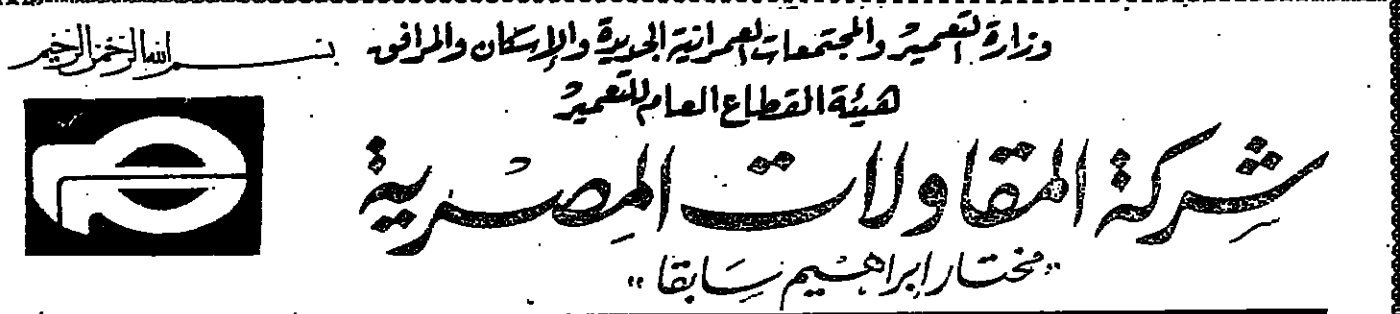 بسم الله الرحمن الرحيم
وزارة التعمير والمجتمعات العمرانية الجديدة والإسكان والمرافق
هيئة القطاع العام للتعمير
شركة المقاولات المصرية
"مختار إبراهيم سابقا"